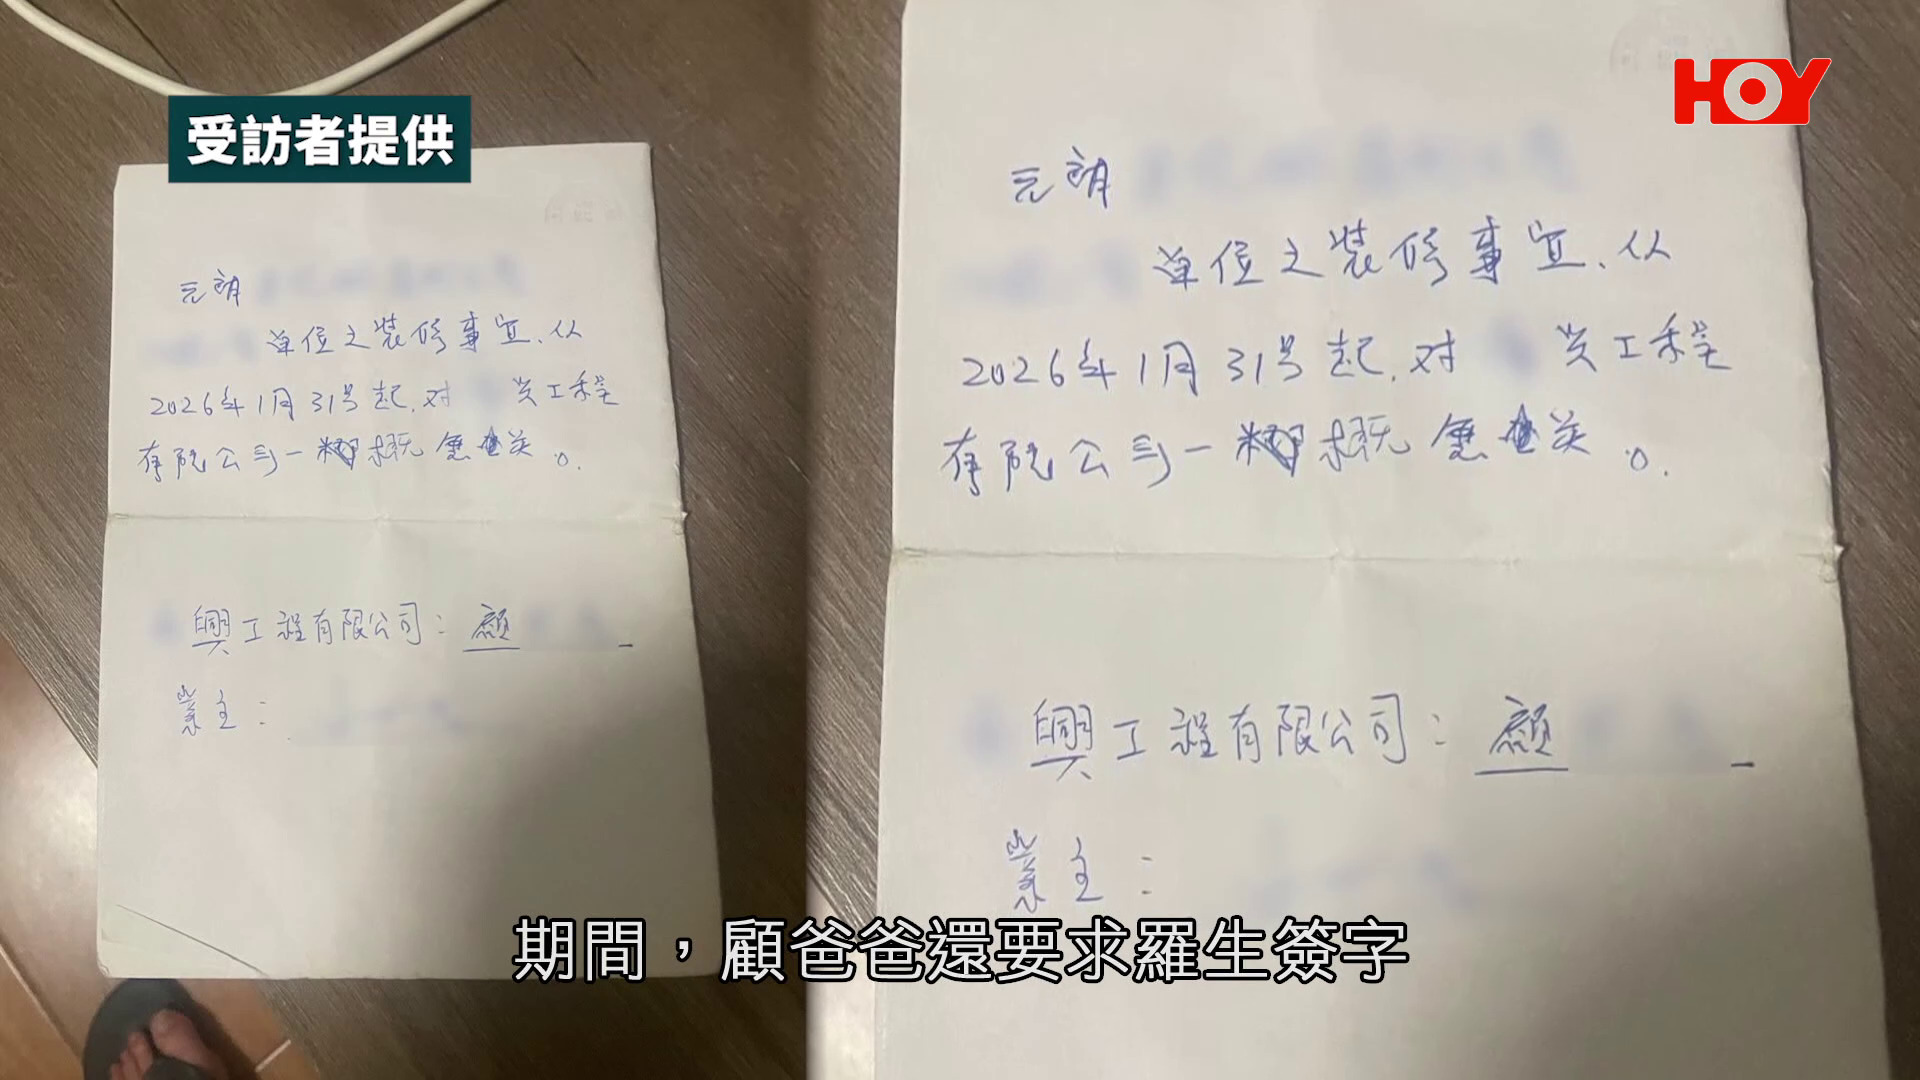 受訪者提供
HOY
元朗
單位之裝修事宜、从
2026年1月31号起,对
工程
有限公司一概無关。
興工程有限公司:顧
業主:
元朗
單位之裝修事宜、从
2026年1月31号起,对
工程
有限公司一概無关。
興工程有限公司:顧
業主:
期間,顧爸爸還要求羅生簽字